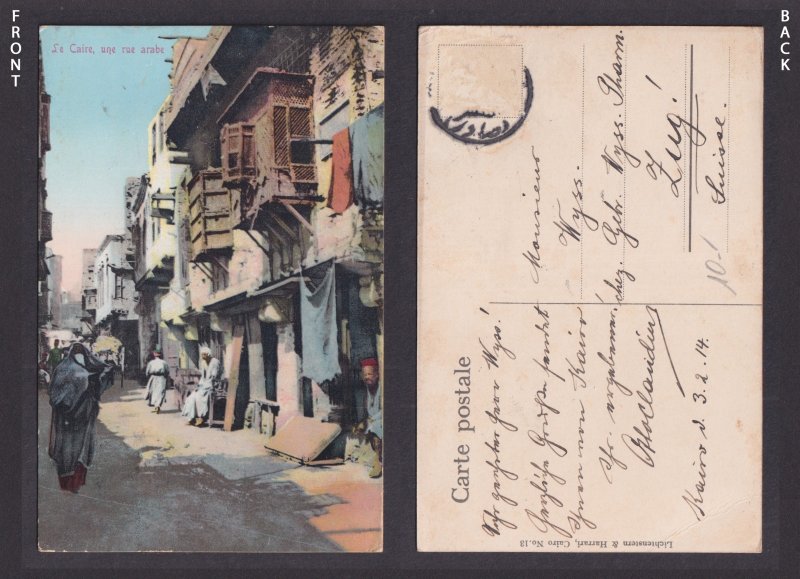 FRONT
Le Caire, une rue arabe
BACK
Monsieur
Wyss.
chez. Gebr. Wyss. Pharm.
Zug!
Suisse.
10-1
Carte postale
Sehr geehrter Herr Wyss!
Herzliche Grüße sendet
Ihnen von Kairo
Ihr ergebener
Kairo d. 3.2.14.
Lichtenstern & Harrari, Cairo No. 13